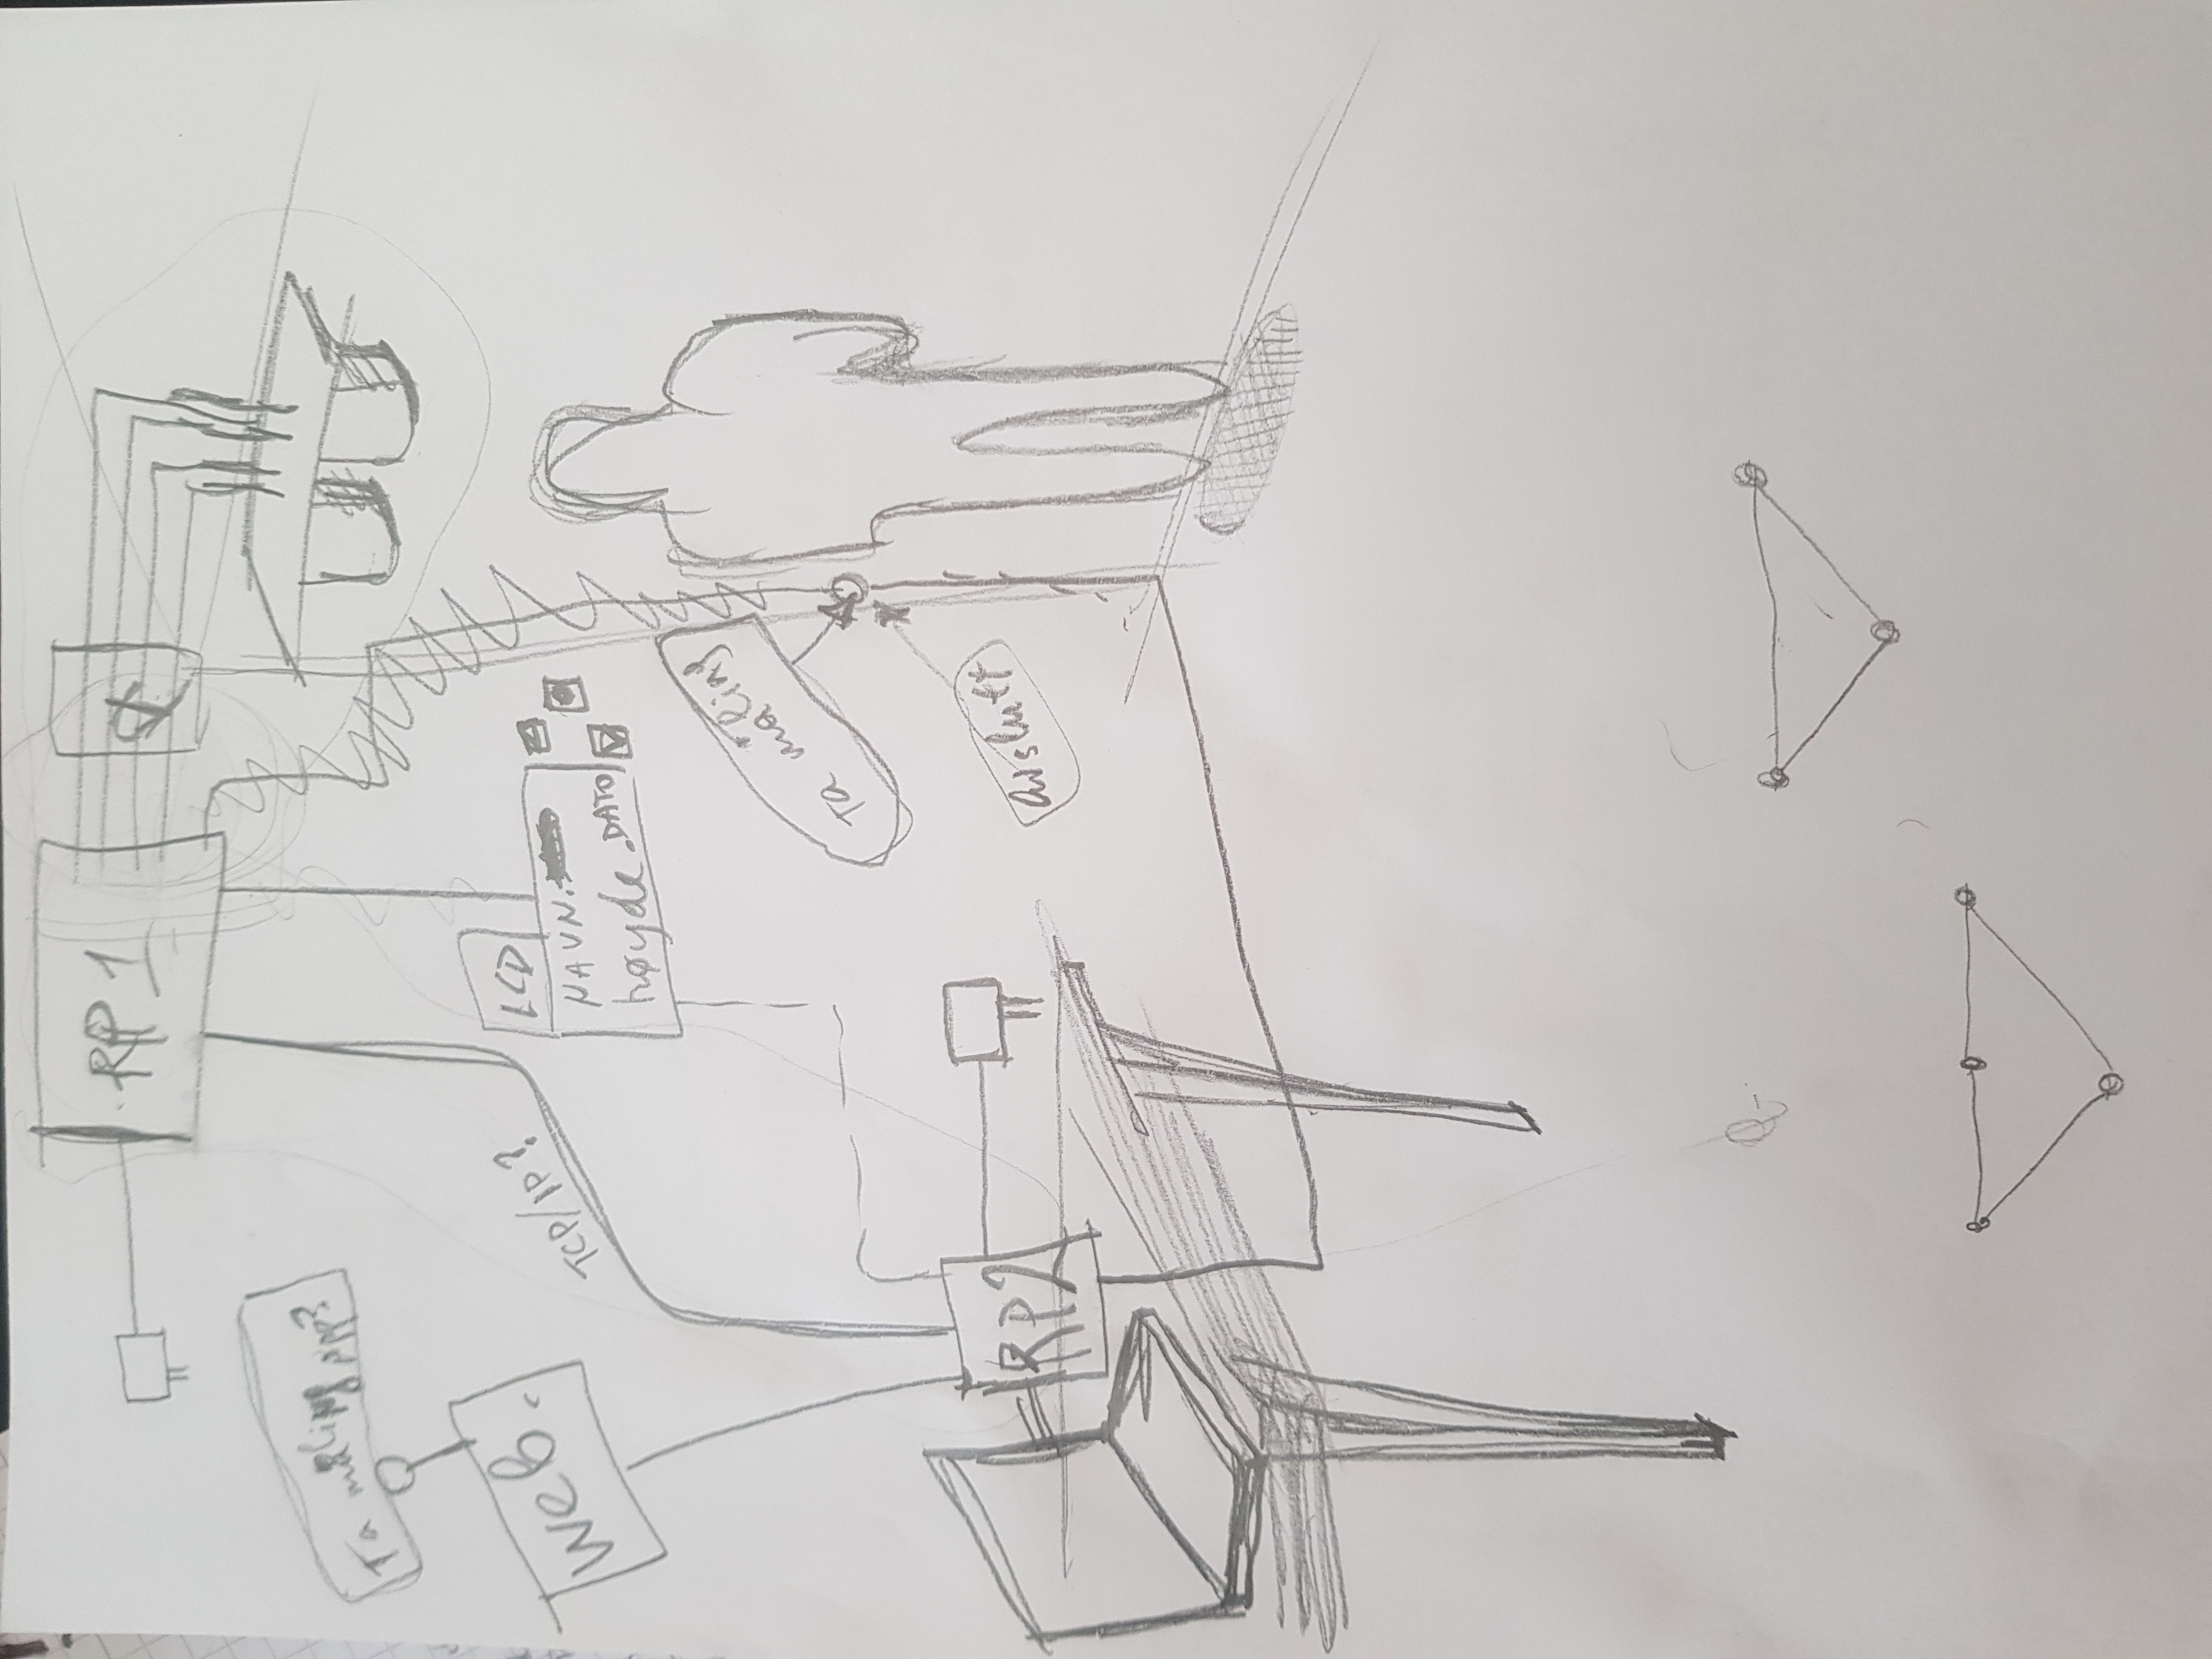 RP 1
Ta måling
web.
TCP/IP?
LCD
NAVN.
høyde.DATO
Ta måling
avslutt
RP2